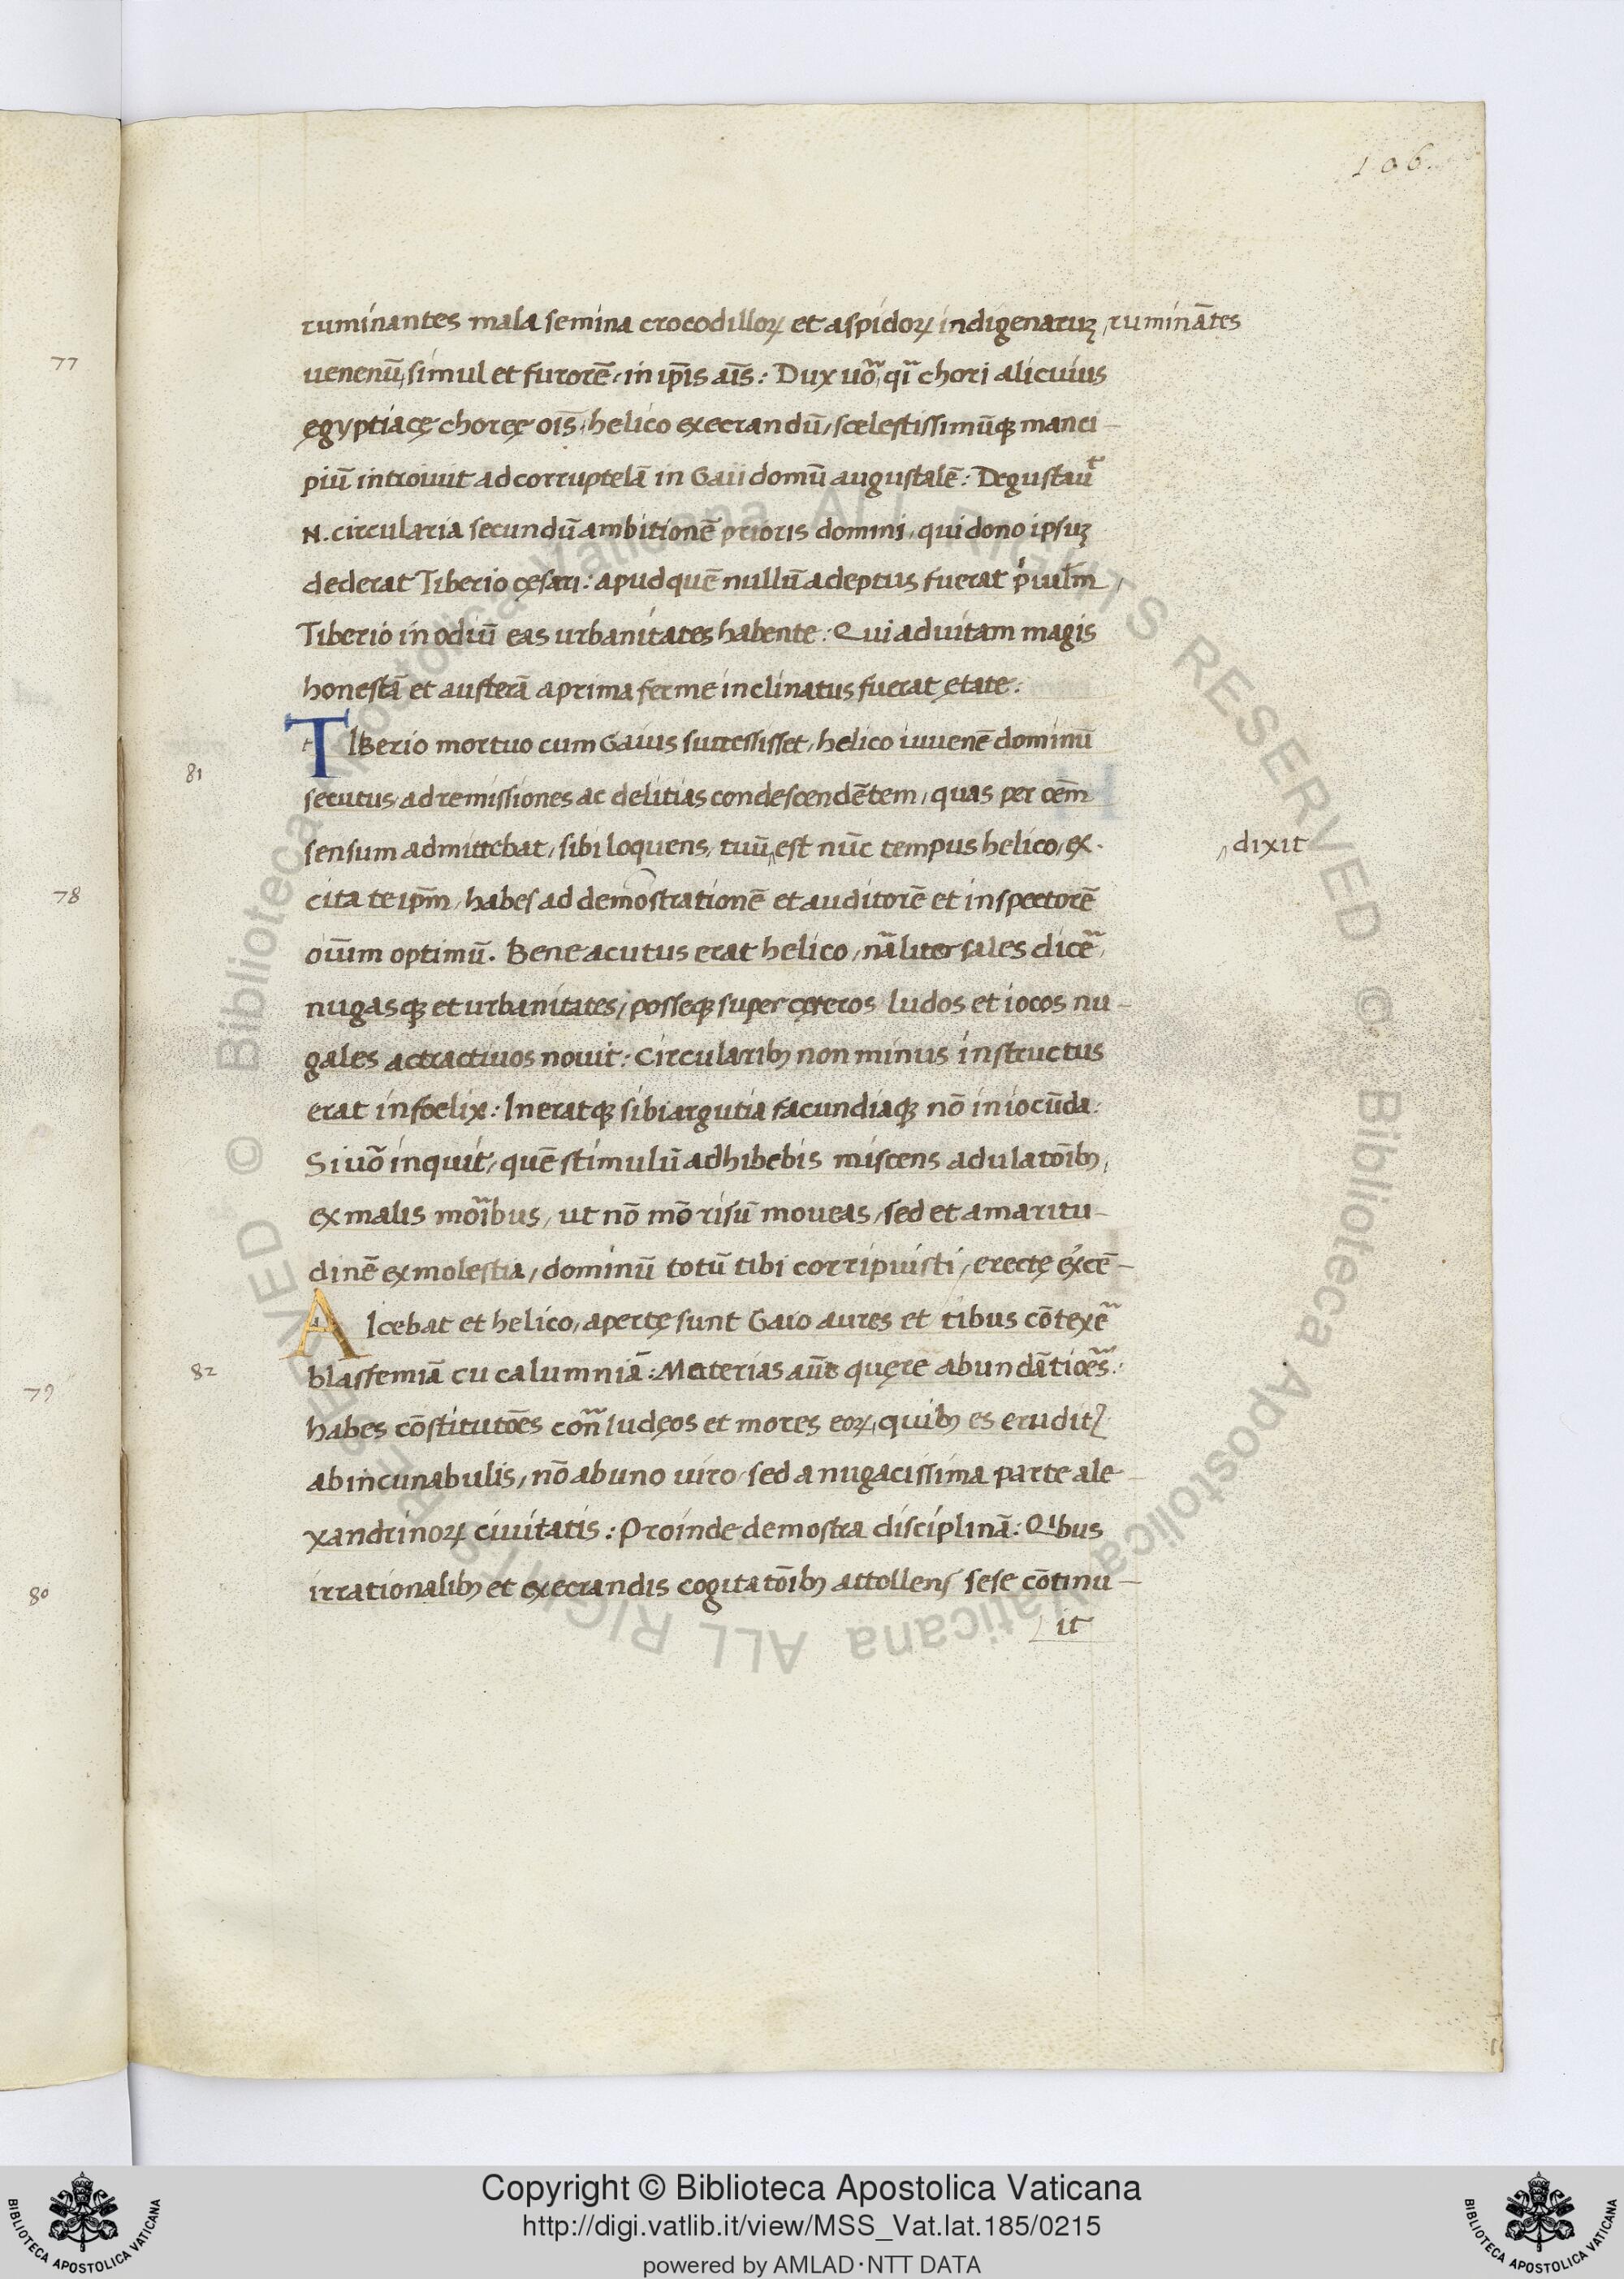 106.
ruminantes mala semina crocodilloꝝ et aspidoꝝ indigenaruꝫ ruminātes
77
uenenū, simul et furorē, in ip̄is aīs: Dux uo͠, qi͠ chori alicuius
ęgyptiacę choreę oīs, helico execrandū, scelestissimūqꝫ manci-
piū introiuit ad corruptelā in Gaii domū augustalē: Degustauᵗ
N. circularia secundū ambitionē prioris domini, qui dono ipsuꝫ
dederat Tiberio cęsari: apud quē nullū adeptus fuerat
Tiberio in odiū eas urbanitates habente: Qui ad uitam magis
honestā et austerā a prima ferme inclinatus fuerat ętate:
TIBerio mortuo cum Gaius successisset, helico iuuenē dominū
81
secutus, ad remissiones ac delitias condescendētem, quas per oēm
sensum admittebat, sibi loquens, tuū est nūc tempus helico, ex- dixit
78
cita te ip̄m, habes ad demostrationē et auditorē et inspectorē
oīum optimū. Bene acutus erat helico, nāliter sales dice͠,
nugasqꝫ et urbanitates, posseqꝫ super cęteros ludos et iocos nu-
gales actractiuos nouit: Circularibꝫ non minus instructus
erat infoelix: Ineratqꝫ sibi argutia facundiaqꝫ nō iniocūda:
Si uo͠ inquit, quē stimulū adhibebis miscens adulatōibꝫ,
ex malis mo͠ibus, ut nō mō risū moueas, sed et amaritu-
dinē ex molestia, dominū totū tibi corripuisti, erectę
AIcebat et helico, apertę sunt Gaio aures et tibus cōtexe͠
82
blasfemiā cu calumniā: Materias aūt quęre͠ abundātioēs:
79
habes cōstitutōes con͠ Iudęos et mores eoꝝ, quibꝫ es erudit᷒
ab incunabulis, nō ab uno uiro, sed a nugacissima parte ale-
xandrinoꝝ ciuitatis: Proinde demostra disciplinā: Qibus
80
irrationalibꝫ et execrandis cogitatōibꝫ attollens sese cōtinu-
it
Copyright © Biblioteca Apostolica Vaticana
http://digi.vatlib.it/view/MSS_Vat.lat.185/0215
powered by AMLAD·NTT DATA
BIBLIOTECA APOSTOLICA VATICANA
BIBLIOTECA APOSTOLICA VATICANA
© Biblioteca Apostolica Vaticana ALL RIGHTS RESERVED © Biblioteca Apostolica Vaticana ALL RIGHTS RESERVED